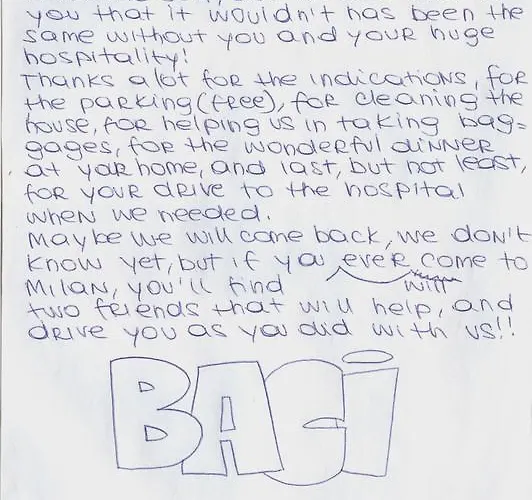 you that it wouldn't has been the
same without you and your huge
hospitality!
Thanks a lot for the indications, for
the parking (free), for cleaning the
house, for helping us in taking bag-
gages, for the wonderful dinner
at your home, and last, but not least,
for your drive to the hospital
when we needed.
Maybe we will come back, we don't
know yet, but if you ever come to
Milan, you'll find will
two friends that will help, and
drive you as you did with us!!
BACI